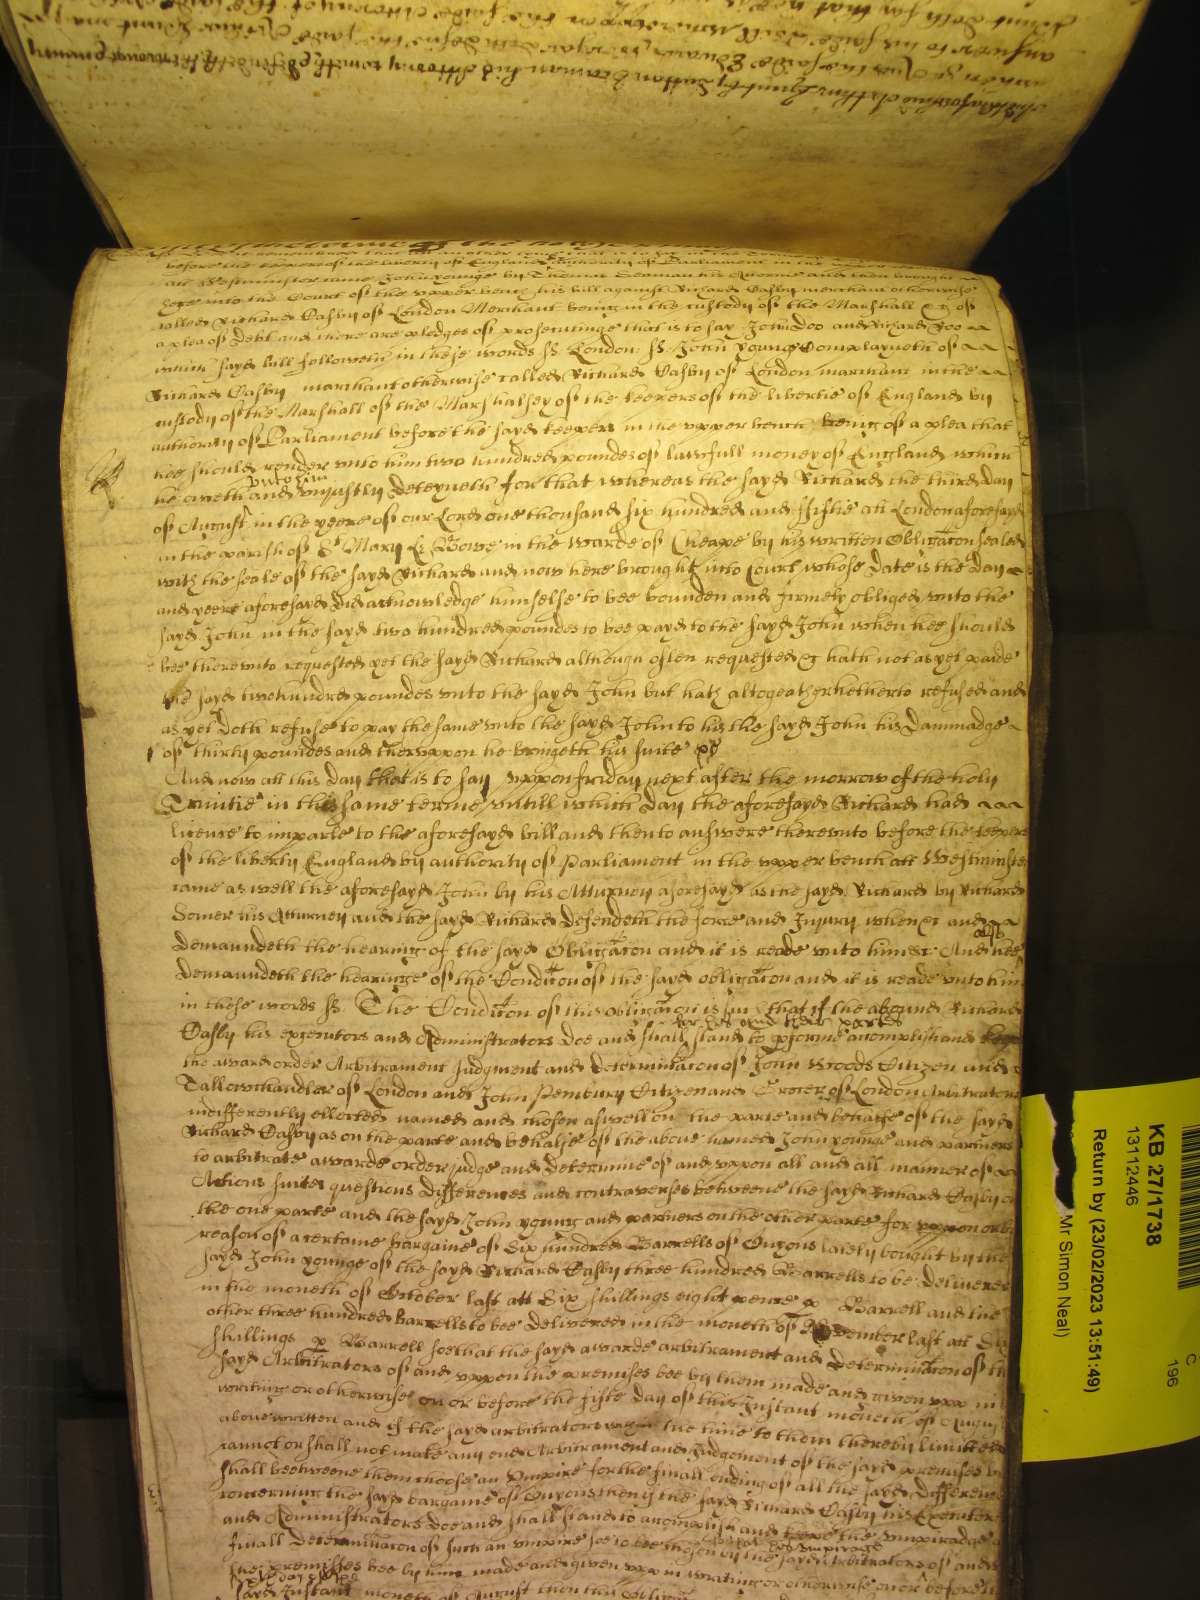 before the keepers of the liberty of England authority of Parliament in the
att Westminster came John younge by Thomas Seaman his Attorney and then brought
here into the Court of the upper bench his bill against Richard Dasby merchant otherwise
called Richard Dasby of London Merchant being in the custody of the Marshall &c of
a plea of Debt and there are pledges of prosecutinge that is to say John Doo and Richard Roo
which sayd bill followeth in these words ss. London: ss. John younge Complayneth of
Richard Dasby marchant otherwise called Richard Dasby of London marchant in the
custody of the Marshall of the Marshalsey of the keepers of the libertie of England by
authority of Parliament before the sayd keepers in the upper bench being of a plea that
hee should render unto him two hundred poundes of lawfull money of England which
he oweth unto him and unjustly deteyneth for that whereas the sayd Richard the third day
of August in the yeere of our Lord one thousand six hundred and fiftie att London aforesayd
in the parish of St Mary Le Bowe in the warde of Cheape by his written Obligacon sealed
with the seale of the sayd Richard and now here brought into Court whose date is the day
and yeere aforesayd did acknowledge himselfe to bee bounden and firmely obliged unto the
sayd John in the sayd two hundred poundes to bee payd to the sayd John when hee should
bee thereunto requested yet the sayd Richard although often requested &c hath not as yet paide
the sayd two hundred poundes unto the sayd John but hath altogeather hetherto refused and
as yet doth refuse to pay the same unto the sayd John to his the sayd John his dammadge
of thirty poundes and thereuppon he bringeth his suite &c
And now att this day that is to say uppon friday next after the morrow of the holy
Trinitie in this same terme untill which day the aforesayd Richard had
licence to imparle to the aforesayd bill and then to answere thereunto before the keepers
of the liberty England by authority of Parliament in the upper bench att Westminster
came as well the aforesayd John by his Atturney aforesayd as the sayd Richard by Richard
Somer his Atturney and the sayd Richard defendeth the force and Injury when &c and
demaundeth the hearing of the sayd Obligacon and it is reade unto him &c And hee also
demaundeth the hearinge of the Condicon of the sayd obligacon and it is reade unto him
in these words ss. The Condicon of this obligacon is such that if the abound Richard
Dasby his executors and Administrators doe and shall for his and their partes stand to performe accomplish and keepe
the award order Arbitrament Judgment and determinacon of John Woods Citizen and
Tallowchandler of London and John Penbury Citizen and Grocer of London Arbitrators
indifferently ellected named and chosen aswell on the parte and behalfe of the sayd
Richard Dasby as on the parte and behalfe of the above named John younge and partners
to arbitrate awarde order judge and determine of and uppon all and all manner of
Actions suites questions differences and contraverses betweene the sayd Richard Dasby on
the one parte and the sayd John young and partners on the other parte for uppon or by
reason of a certaine bargaine of Six hundred Barrells of Onyons lately bought by the
sayd John younge of the sayd Richard Dasby three hundred Barrells to be delivered
in the moneth of October last att Six shillings eight pence p Barrell and the
other three hundred Barrells to bee delivered in the moneth of November last att Six
shillings p Barrell soe that the sayd awarde arbitrament and determinacon of the
sayd Arbitrators of and uppon the premises bee by them made and given upp in
writing or otherwise on or before the fifte day of this Instant moneth of August
above written and if the sayd arbitrators within the time to them thereby limitted
cannot or shall not make any end Arbitrament and Judgement of the sayd premises but
shall betweene them choose an Umpire for the finall ending of all the sayd differences
concerning the sayd bargaine of Onyons then if the sayd Richard Dasby his Executors
and Administrators doe and shall stand to accomplish and keepe the umpiradge and
finall determinacon of such an umpire soe to bee chosen by the sayd Arbitrators of and
soe that his umpirage
the premisses bee by him made and given upp in writing or otherwise on or before
sayd Instant moneth of August then this Obligacon
KB 27/1738
13112446
Return by (23/02/2023 13:51:49)
Mr Simon Neal)
C
196